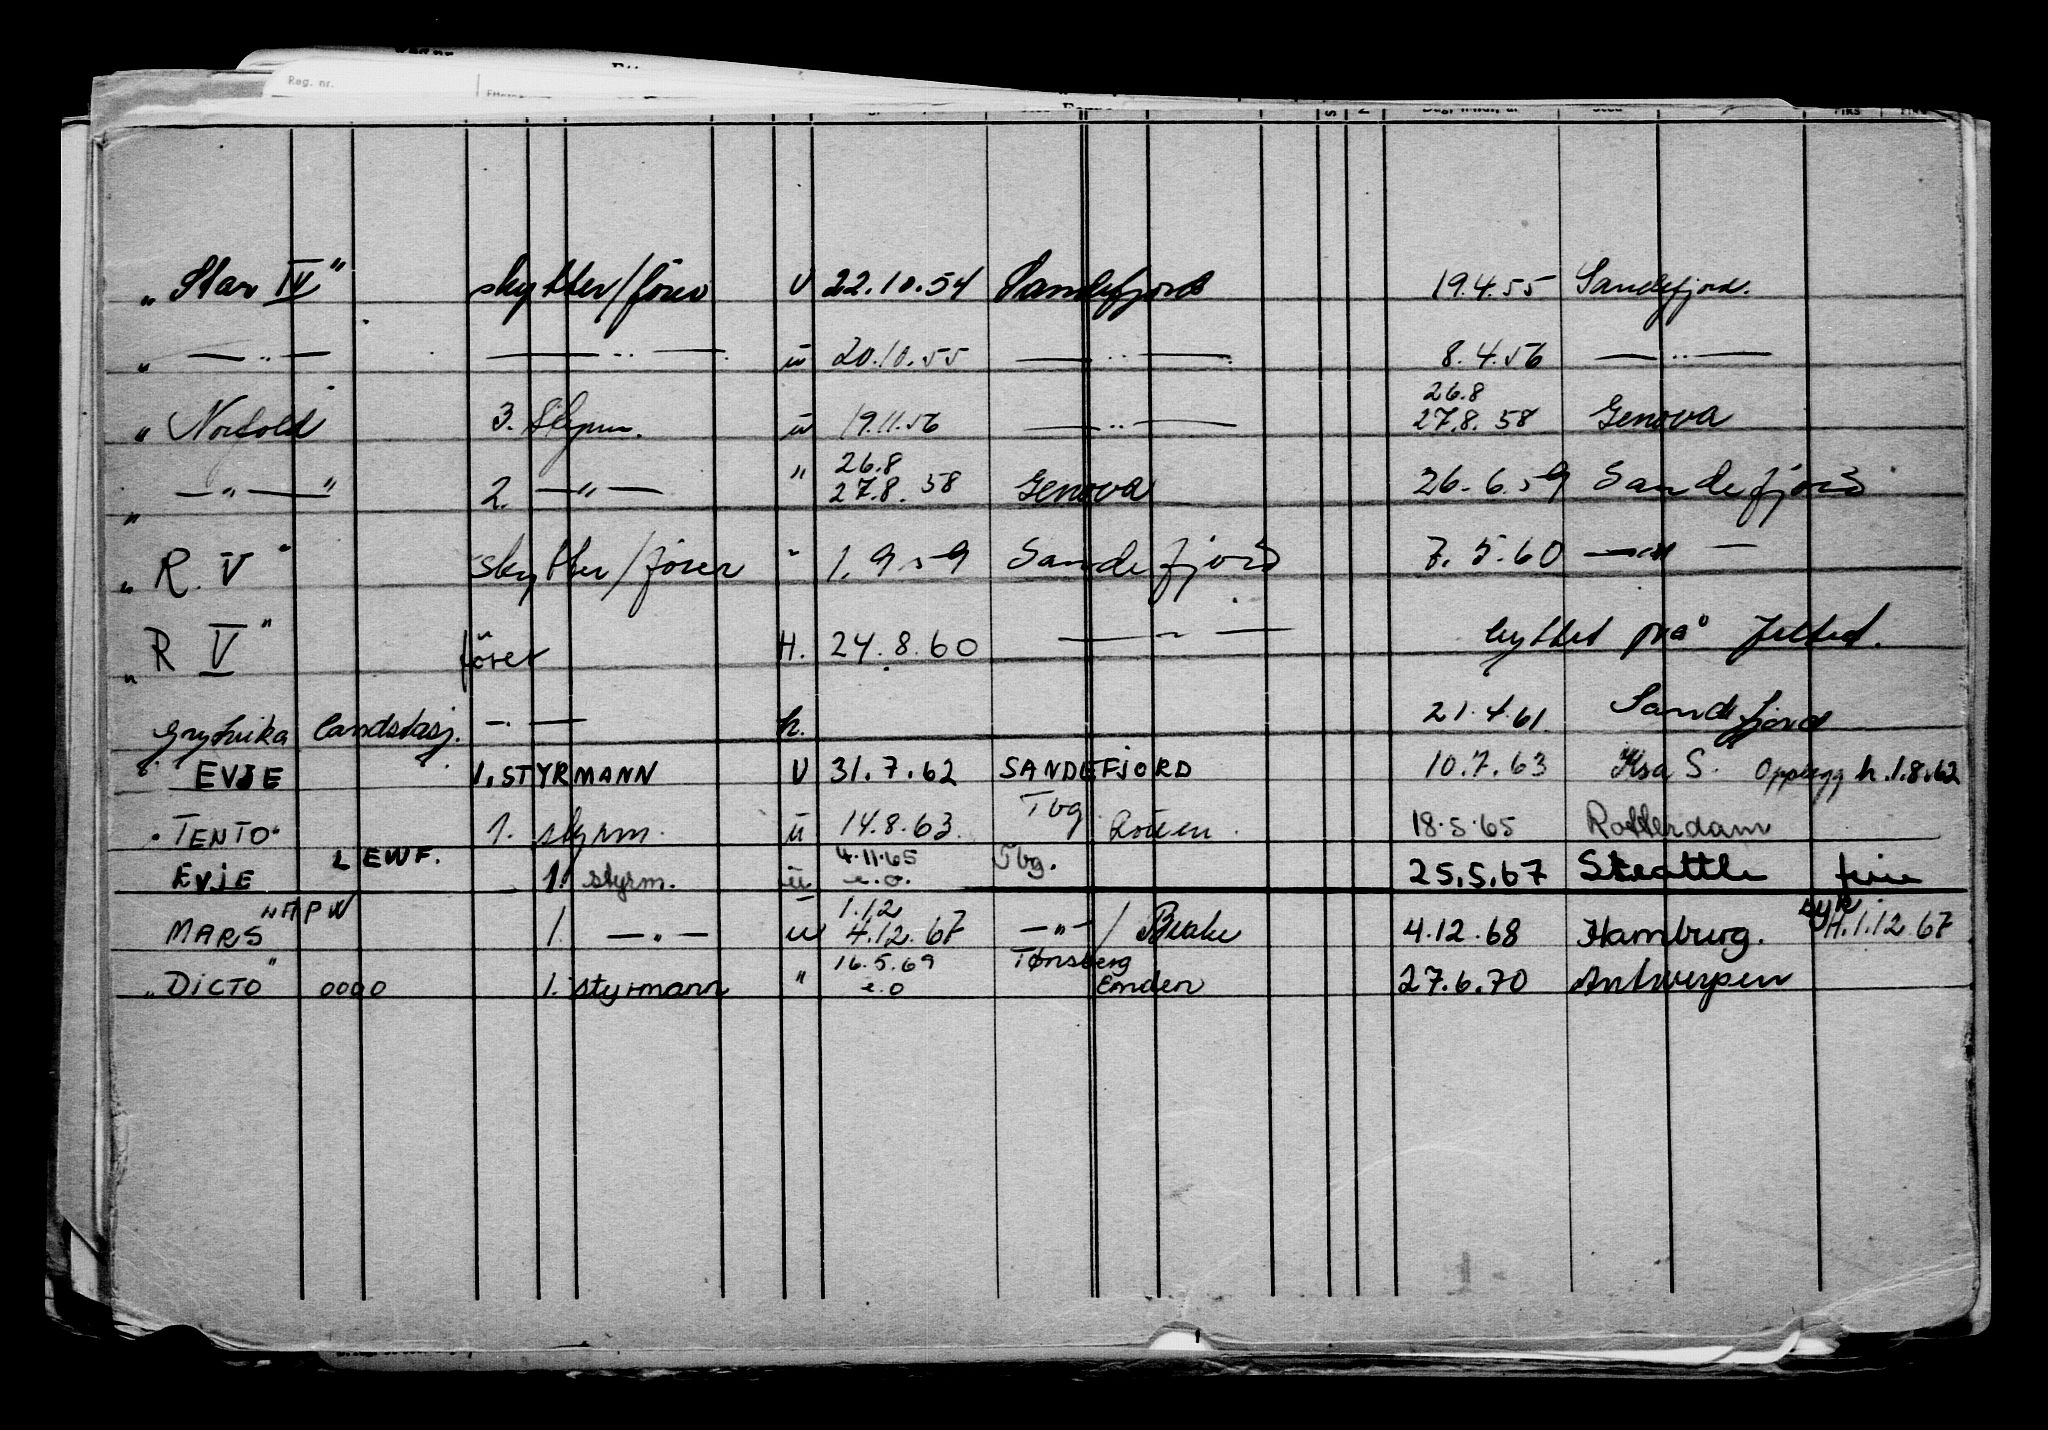 Reg. nr.
„Star IV" skytter/förer U 22.10.54 Sandefjord 19.4.55 Sandefjord.
„ — „ — — „ — ū 20.10.55 — „ — 8.4.56 — „ —
26.8
„ Norfold 3. Styrm. ū 19.11.56 — „ — 27.8.58 Genova
26.8
„ — „ — " 2. — „ — " 27.8.58 Genova 26.6.59 Sandefjord
„ R. V" skytter/förer " 1.9.59 Sandefjord 7.5.60 — „ —
„ R V" förer H. 24.8.60 — „ — byttet på feltet.
Grytvika landstasj. — „ — h. 21.4.61. Sandefjord
EVJE 1. STYRMANN U 31.7.62 SANDEFJORD 10.7.63 S. Opplegg h. 1.8.62
"TENTO" 1. styrm. ū 14.8.63. Tbg Rouen. 18.5.65 Rotterdam
EVJE LEWF. 1. styrm. ū 4.11.65 e.o. Tbg. 25.5.67 Seattle ferie
MARS 1. — „ — u 1.12 4.12.67 — „ — / Brake 4.12.68 Hamburg. H. 1.12.67
„DICTO" 0000 1. styrmann " 16.5.69 e.o Tønsberg Emden 27.6.70 Antwerpen